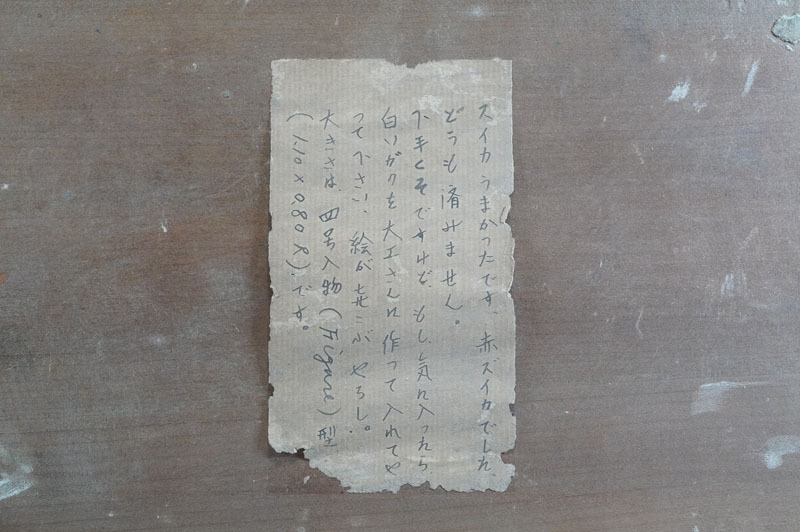 スイカうまかったです、赤ズイカでした、
どうも済みません。
下手くそですけど、もし、気に入ったら
白いガクを大工さんに作って入れてや
って下さい、絵がよろこぶやろし。
大きさは、四号人物(Figure)型
(1.10×0.80尺)です。